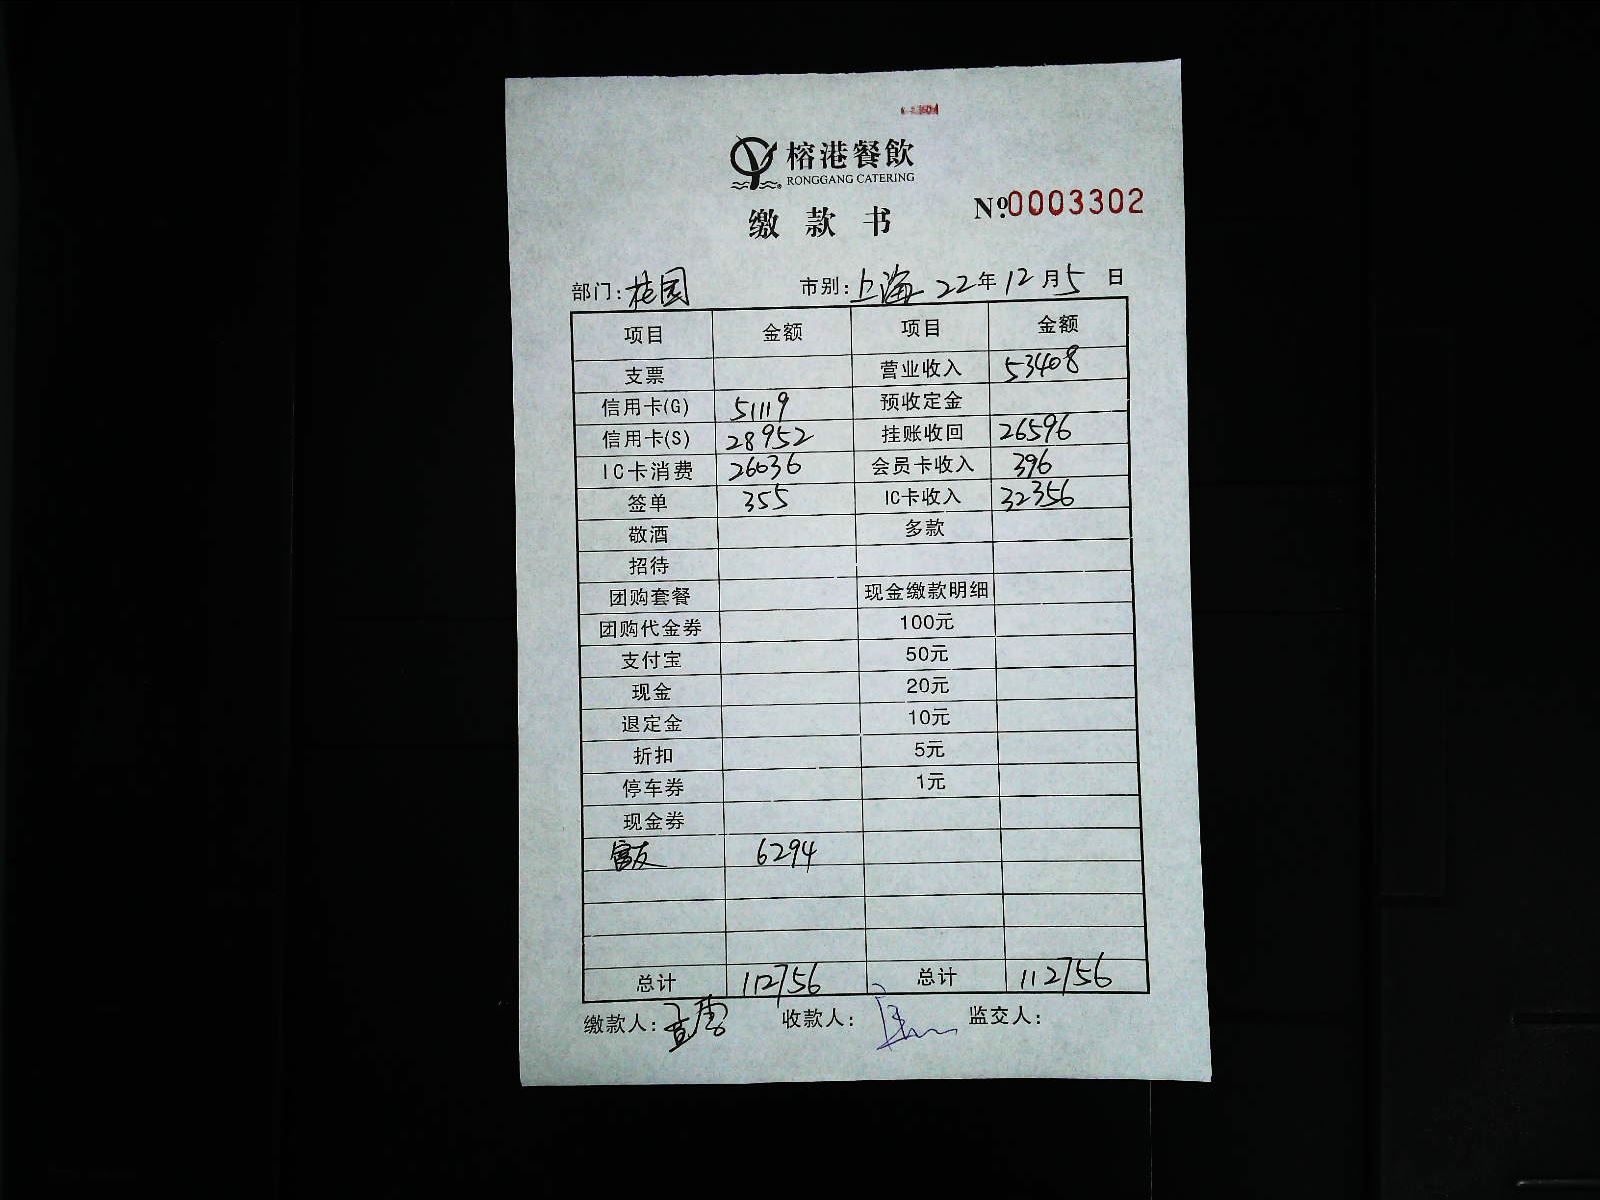 榕港餐飲
RONGGANG CATERING
缴款书 №0003302
部门：桂园 市别：上海 22年12月5日
项目 金额 项目 金额
支票 营业收入 53408
信用卡(G) 51119 预收定金
信用卡(S) 28952 挂账收回 26596
IC卡消费 26036 会员卡收入 396
签单 355 IC卡收入 32356
敬酒 多款
招待
团购套餐 现金缴款明细
团购代金券 100元
支付宝 50元
现金 20元
退定金 10元
折扣 5元
停车券 1元
现金券
富友 6294
总计 112756 总计 112756
缴款人： 收款人： 监交人：